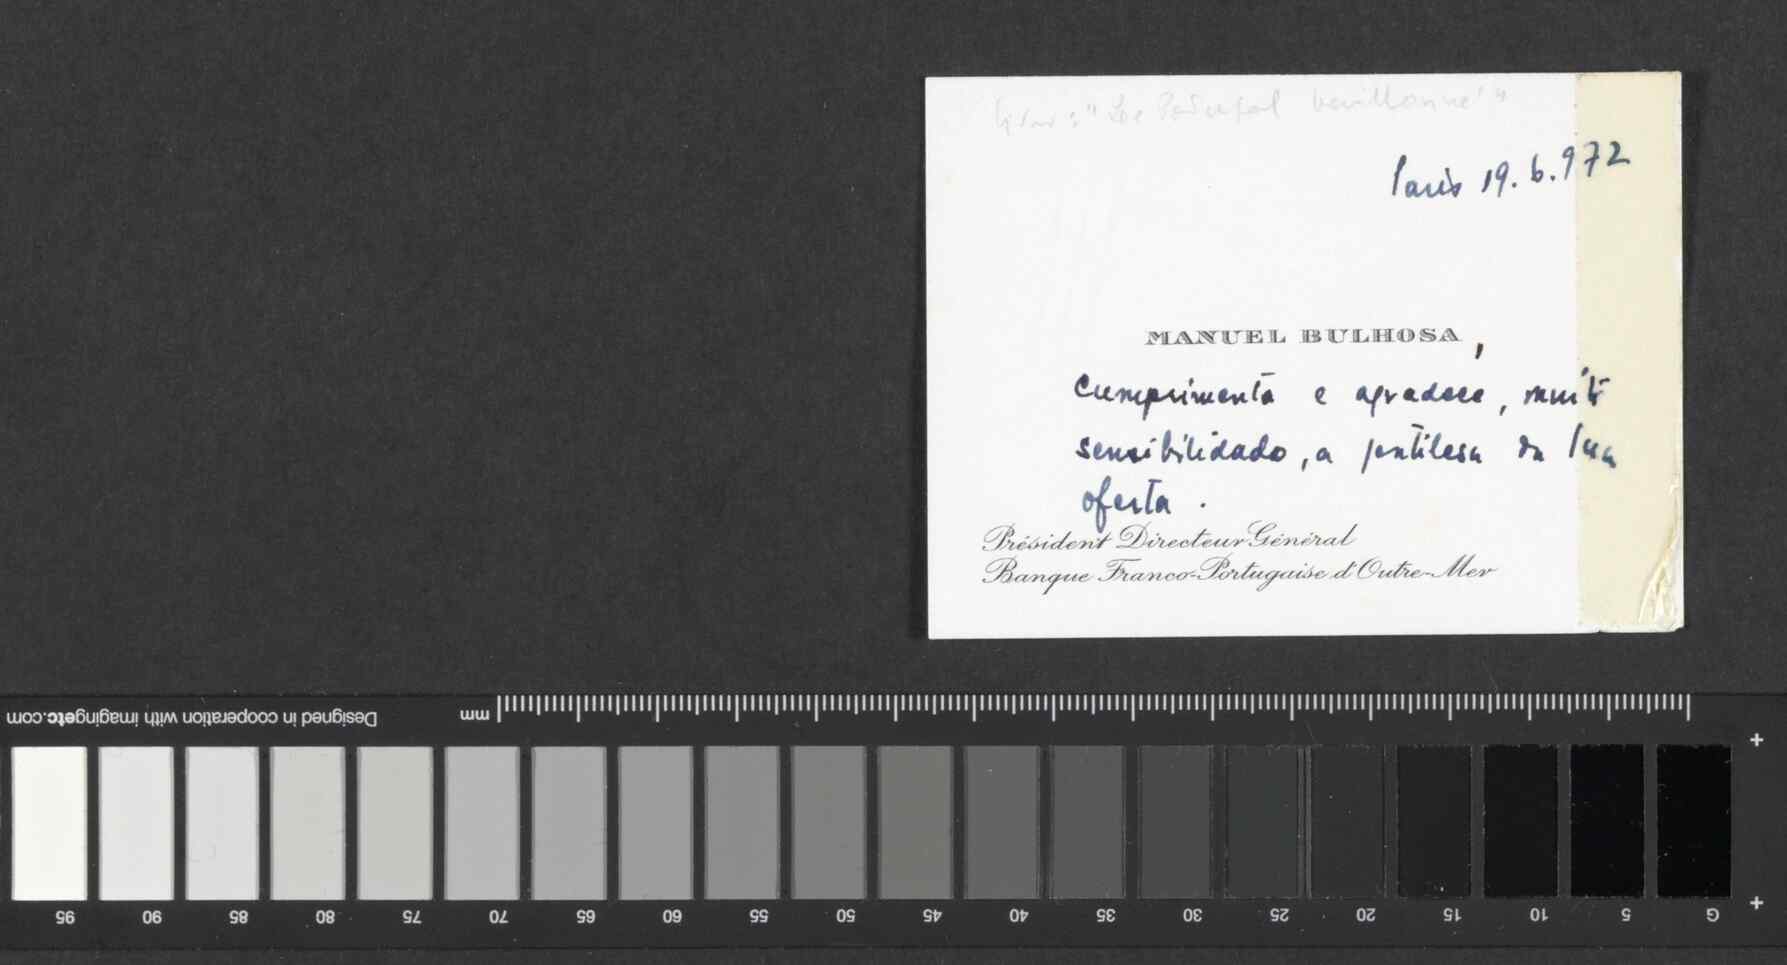 Livro: "Le Portugal baillonné"
Paris 19.6.972
MANUEL BULHOSA,
cumprimenta e agradece, muito
sensibilidado, a gentilesa da sua
oferta.
Président Directeur Général
Banque Franco-Portugaise d'Outre-Mer
Designed in cooperation with imagingetc.com
mm
95 90 85 80 75 70 65 60 55 50 45 40 35 30 25 20 15 10 5 G